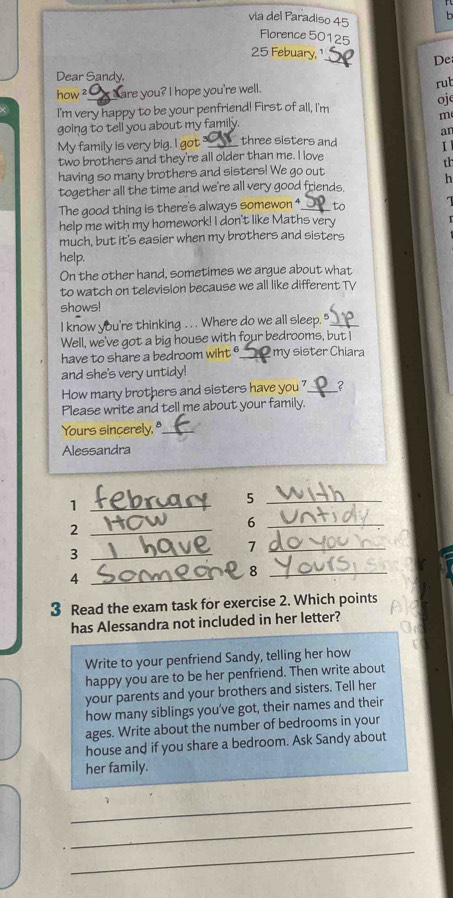 via del Paradiso 45
Florence 50125
25 Febuary, ¹ Sp
Dear Sandy,
how ² are you? I hope you're well.
I'm very happy to be your penfriend! First of all, I'm
going to tell you about my family.
My family is very big. I got ³ gr three sisters and
two brothers and they're all older than me. I love
having so many brothers and sisters! We go out
together all the time and we're all very good friends.
The good thing is there's always somewon ⁴ Sp to
help me with my homework! I don't like Maths very
much, but it's easier when my brothers and sisters
help.
On the other hand, sometimes we argue about what
to watch on television because we all like different TV
shows!
I know you're thinking . . . Where do we all sleep. ⁵ Sp
Well, we've got a big house with four bedrooms, but I
have to share a bedroom wiht ⁶ Sp my sister Chiara
and she's very untidy!
How many brothers and sisters have you ⁷ P ?
Please write and tell me about your family.
Yours sincerely, ⁸ F
Alessandra
1 february 5 with
2 How 6 Untidy
3 I have 7 do you h
4 Someone 8 Yours,
3 Read the exam task for exercise 2. Which points
has Alessandra not included in her letter?
Write to your penfriend Sandy, telling her how
happy you are to be her penfriend. Then write about
your parents and your brothers and sisters. Tell her
how many siblings you've got, their names and their
ages. Write about the number of bedrooms in your
house and if you share a bedroom. Ask Sandy about
her family.